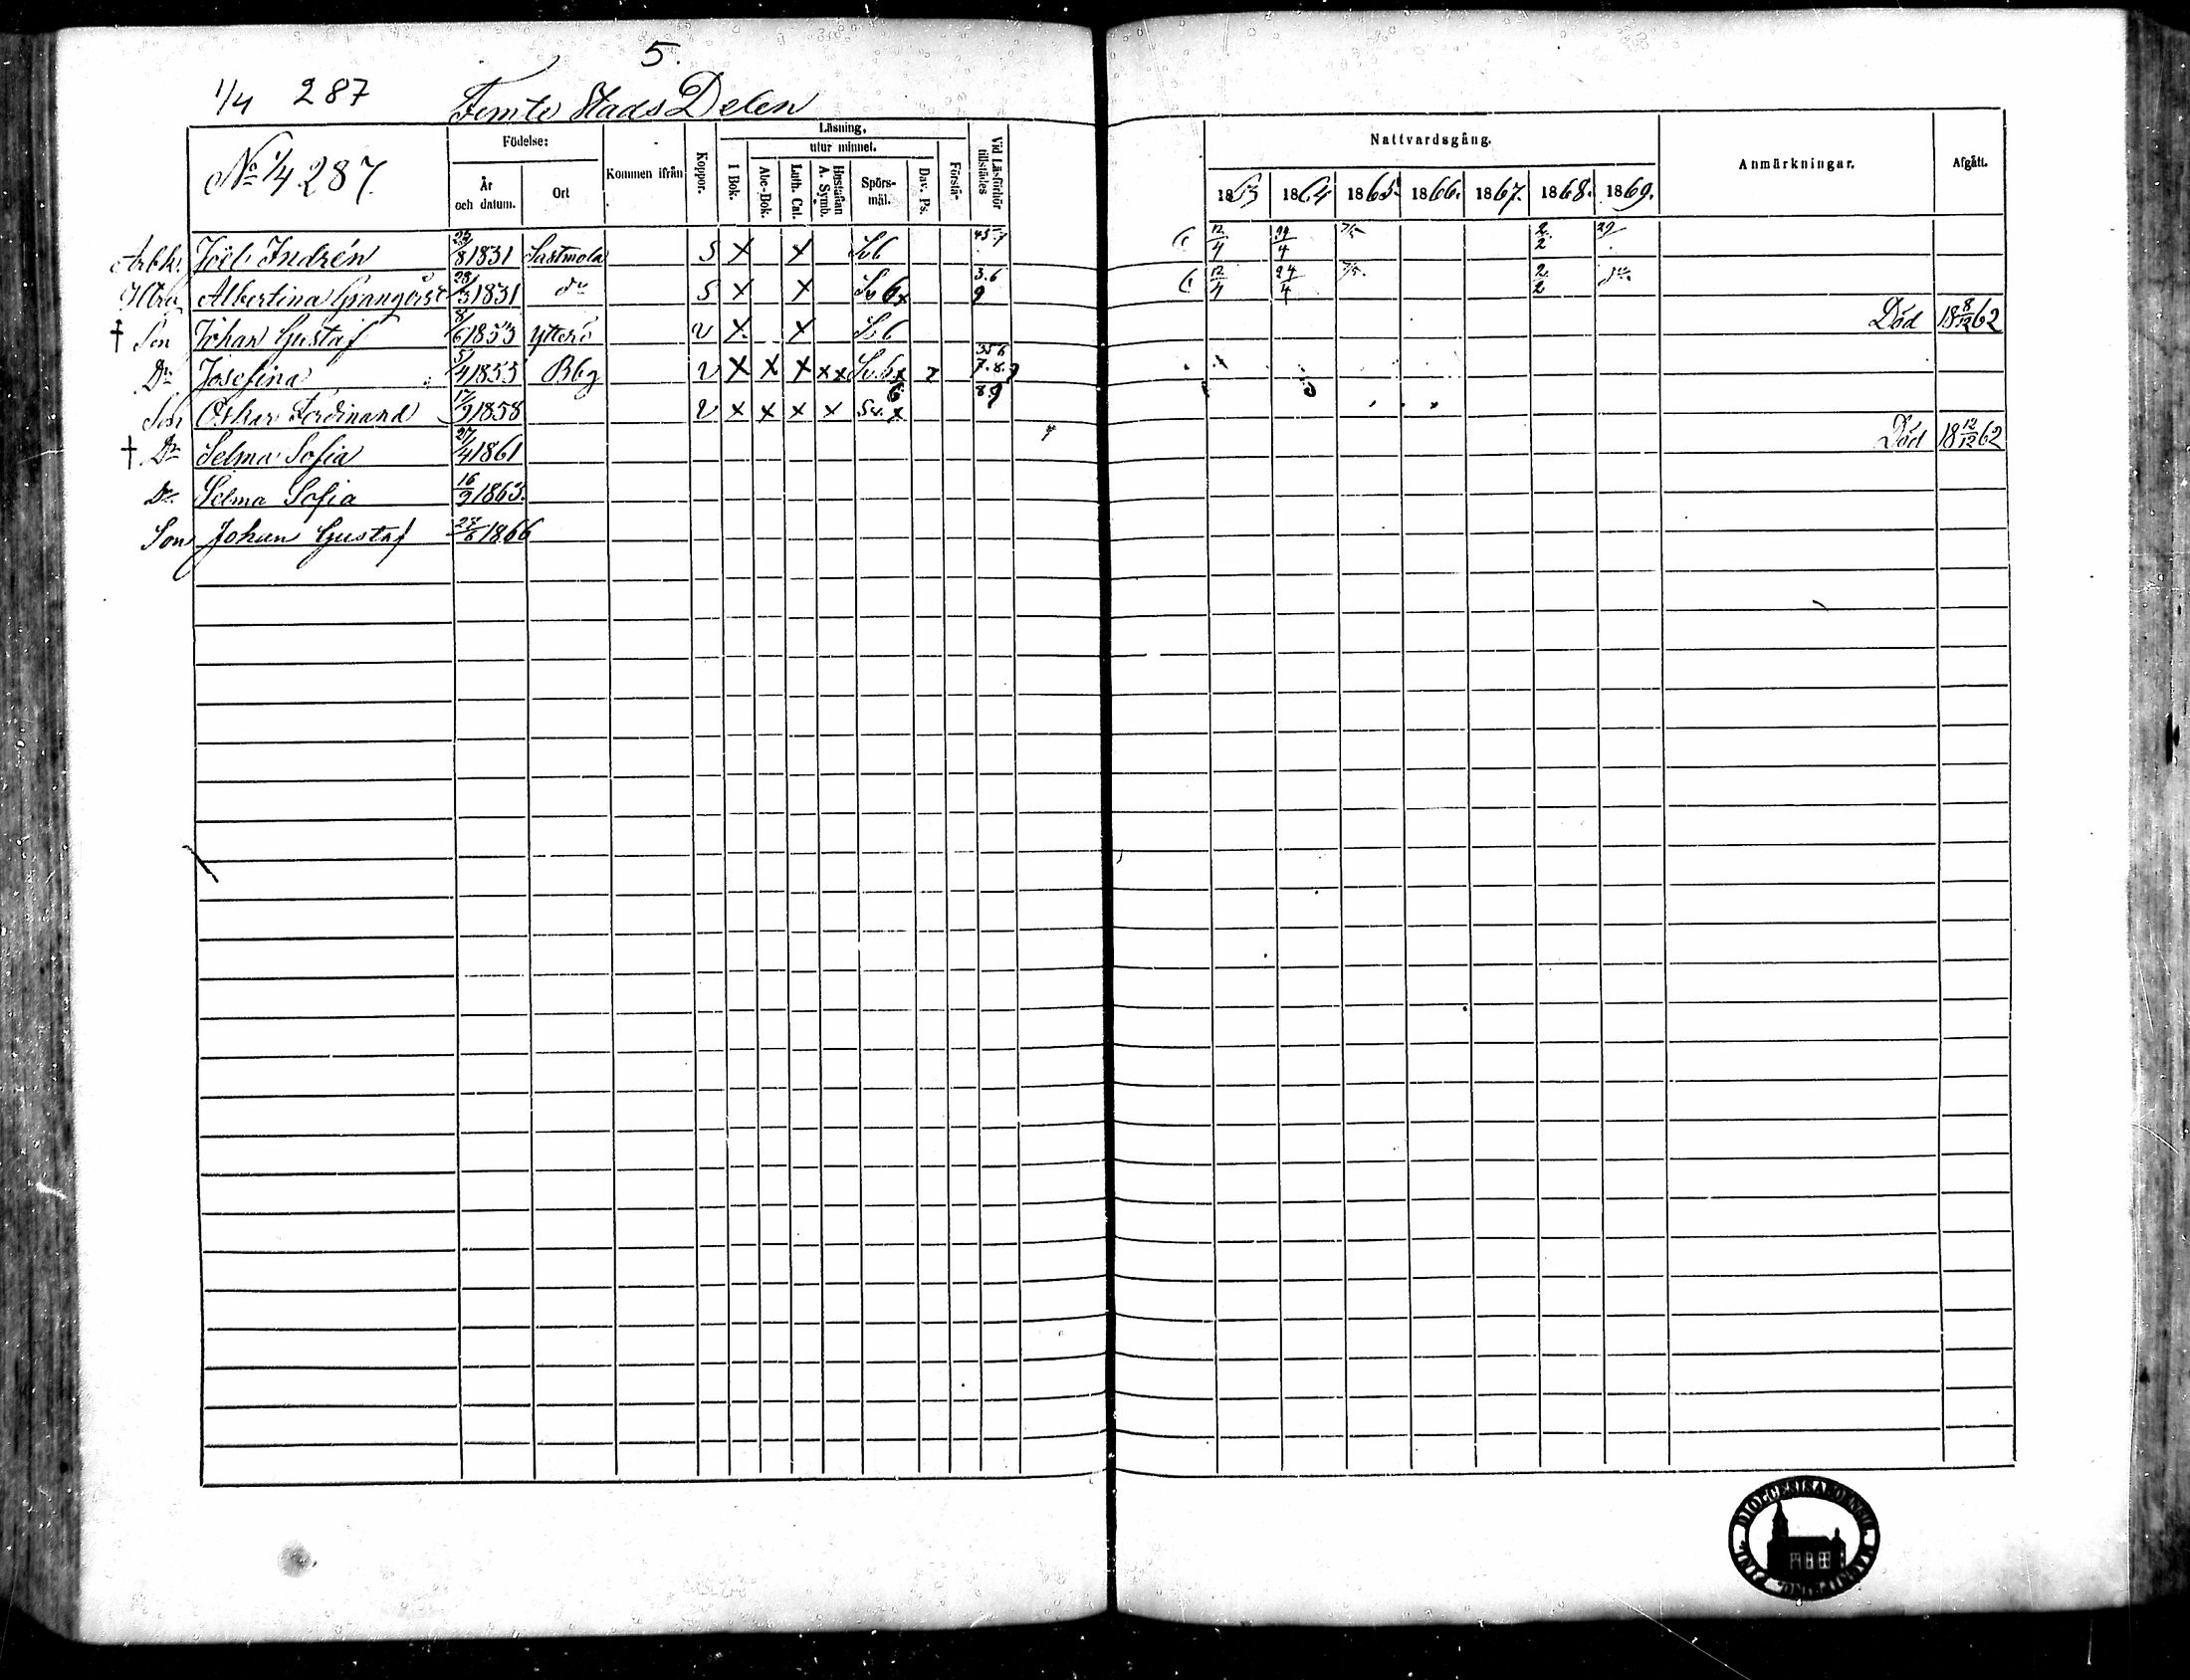 5.
1/4 287 Femte Stads Delen
No 1/4 287.
Födelse:
År och datum.
Ort
Kommen ifrån
Koppor.
Läsning,
utur minnet.
I Bok.
Abc-Bok.
Luth. Cat.
Hustaflan A. Symb.
Spörsmål.
Dav. Ps.
Förstår
Vid Läsförhör tillstädes
Nattvardsgång.
1863 1864 1865. 1866. 1867. 1868. 1869.
Anmärkningar.
Afgått.
Arbk. Joël Indrén 8 1831 Sastmola S x x Svb 12/4 24/4 2/2
Albertina 28/3 1831 do S x x Svb x 3.6 9 12/4 24/4 7/5. 2/2
† Son Johan Gustaf 8/6 1853 Ytterö v x x Svb Död 18 8/12 62
Dr Josefina 5/4 1855 Bbg v x x x x x Svb x 356 7.8.9
Son Oskar Ferdinand 17/9 1858 v x x x x Sv. x 89
† Dr Selma Sofia 27/4 1861 Död 18 12/12 62
Dr Selma Sofia 16/9 1863.
Son Johan Gustaf 27/6 1866